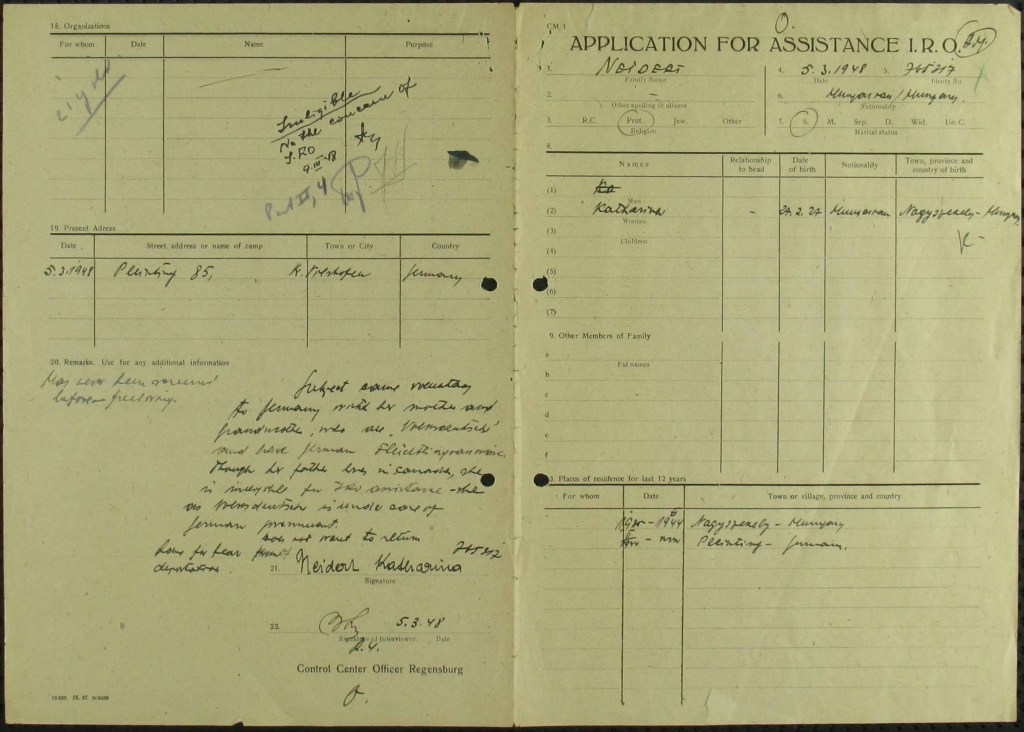 18. Organisations
For whom Date Name Purpose
Ineligible
Not the concern of
IRO
9.III.48
Part II, 4
19. Present Adress
Date Street, address or name of camp Town or City Country
5.3.1948 Pleinting 85, K. Vilshofen Germany
20. Remarks. Use for any additional information
Has never been
before
Subject came voluntary
to Germany with her mother and
grandmother, who are "Volksdeutsche"
and have German
Though her father lives in Canada, she
is ineligible for IRO assistance - she
as Volksdeutsche is under care of
German
Does not want to return
home for fear from
deportation.
765217
21. Neidert Katharina
Signature
22. 5.3.48
Signature of Interviewer. Date
Control Center Officer Regensburg
CM/1
APPLICATION FOR ASSISTANCE I.R.O.
1. Neidert
Family Name
4. 5.3.1948
Date
5. 765217
Identy No.
2. –
Other spelling or aliases
6. Hungarian/Hungary.
Nationality
3. R.C. Prot. Jew. Other
Religion
7. S. M. Sep. D. Wid. Un. C.
Marital status
8.
Names Relationship to head Date of birth Nationality Town, province and country of birth
(1)
Man
(2) Katharina - 27.2.27 Hungarian Nagyszekely - Hungary
Woman
(3)
Children
(4)
(5)
(6)
(7)
9. Other Members of Family
a
Ful names
b
c
d
e
f
f
0. Places of residence for last 12 years
For whom Date Town or village, province and country
1944 Nagyszekely - Hungary
- now Pleinting - Germany.